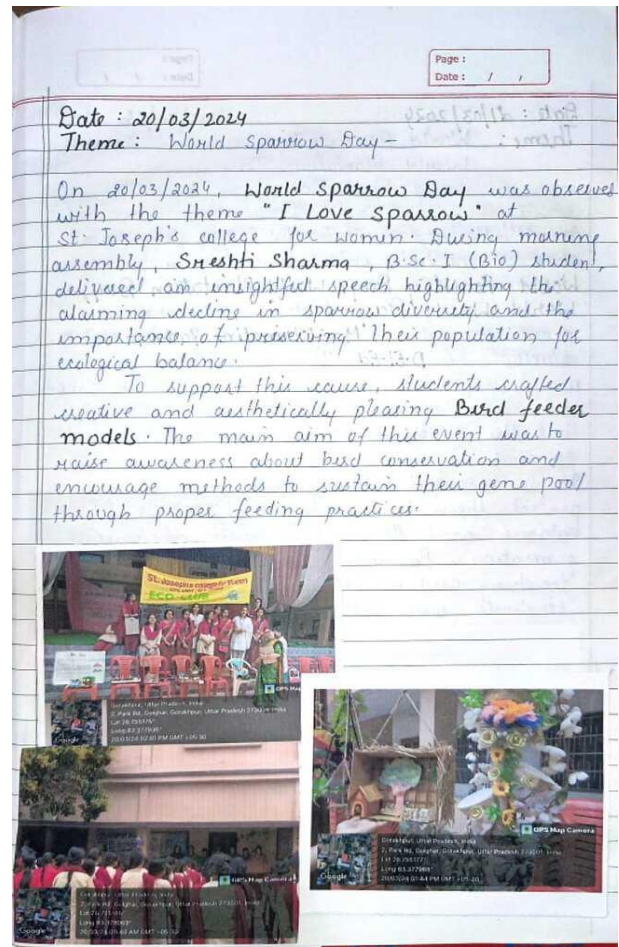 Page :
Date : / /
Date : 20/03/2024
Theme : World Sparrow Day -
On 20/03/2024, World Sparrow Day was observed
with the theme "I Love Sparrow" at
St. Joseph's college for women. During morning
assembly, Sreshti Sharma, B.Sc. I (Bio) student,
delivered an insightful speech highlighting the
alarming decline in sparrow diversity and the
importance of preserving their population for
ecological balance.
To support this cause, students crafted
creative and aesthetically pleasing Bird feeder
models. The main aim of this event was to
raise awareness about bird conservation and
encourage methods to sustain their gene pool
through proper feeding practices.
St. Joseph's college for Women
ECO-CLUB
GPS Map
Gorakhpur, Uttar Pradesh, India
2, Park Rd, Golghar, Gorakhpur, Uttar Pradesh 273001, India
Google
GPS Map Camera
Gorakhpur, Uttar Pradesh, India
2, Park Rd, Golghar, Gorakhpur, Uttar Pradesh 273001, India
Google
GPS Map Camera
Gorakhpur, Uttar Pradesh, India
2, Park Rd, Golghar, Gorakhpur, Uttar Pradesh 273001, India
Google